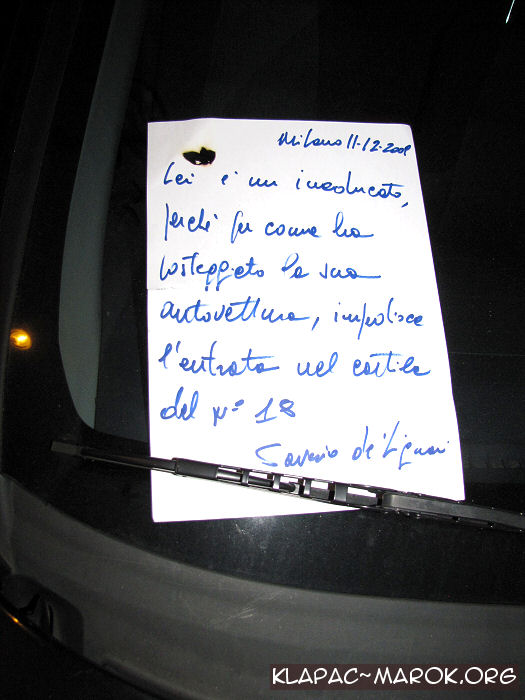 Milano 11-12-2008
Lei è un ineducato,
perché per come ha
posteggiato la sua
autovettura, impedisce
l'entrata nel cortile
del n° 18
Saverio de' Liguori
KLAPAC-MAROK.ORG